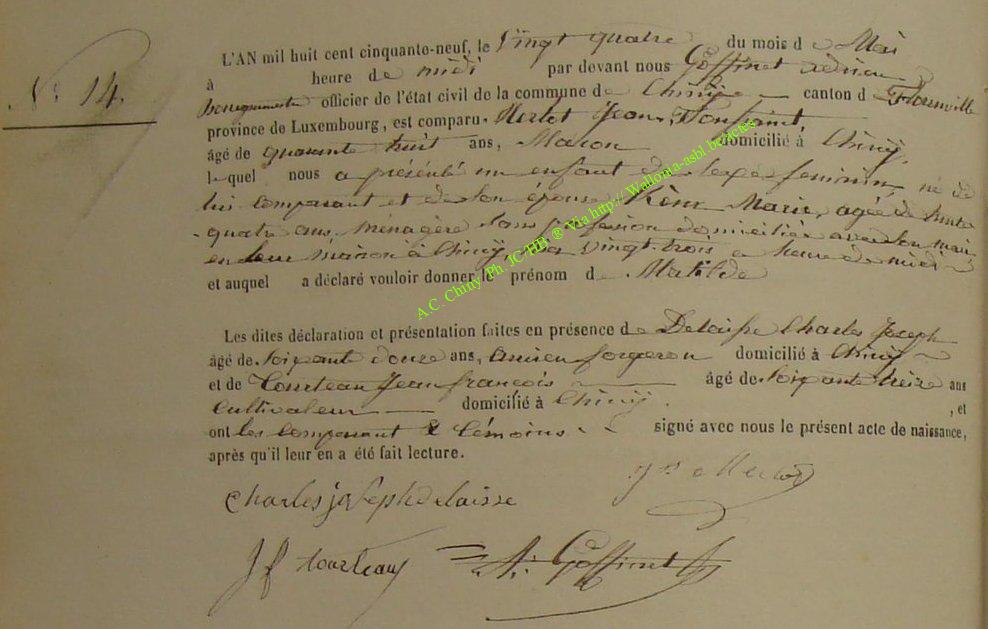 N.º 14.
L'AN mil huit cent cinquante-neuf, le Vingt quatre du mois d e Mai
à heure de midi par devant nous Goffinet Adrien
Bourgmestre officier de l'état civil de la commune de Chiny canton d e Florenville
province de Luxembourg, est comparu Herlot Jean, Toussaint,
âgé de quarante huit ans, Macon domicilié à Chiny,
lequel nous a présenté un enfant de sexe feminin, né de
lui comparant et de son épouse Marie, agée de trente
quatre ans, ménagère sans profession domiciliée avec son mari
en leur maison à Chiny, vingt trois a heure de midi
et auquel a déclaré vouloir donner le prénom d e Matilde
A.C. Chiny, Ph. IC-HB ® Via http:// Wallonia-asbl.be/actes
Les dites déclaration et présentation faites en présence de Delaisse Charles Joseph
âgé de soixante douze ans, ancien forgeron domicilié à Chiny
et de Tourteau Jean françois âgé de soixante treize ans
Cultivateur domicilié à Chiny , et
ont les comparant & témoins signé avec nous le présent acte de naissance,
après qu'il leur en a été fait lecture.
Charles joseph delaisse
J f tourteau A: Goffinet